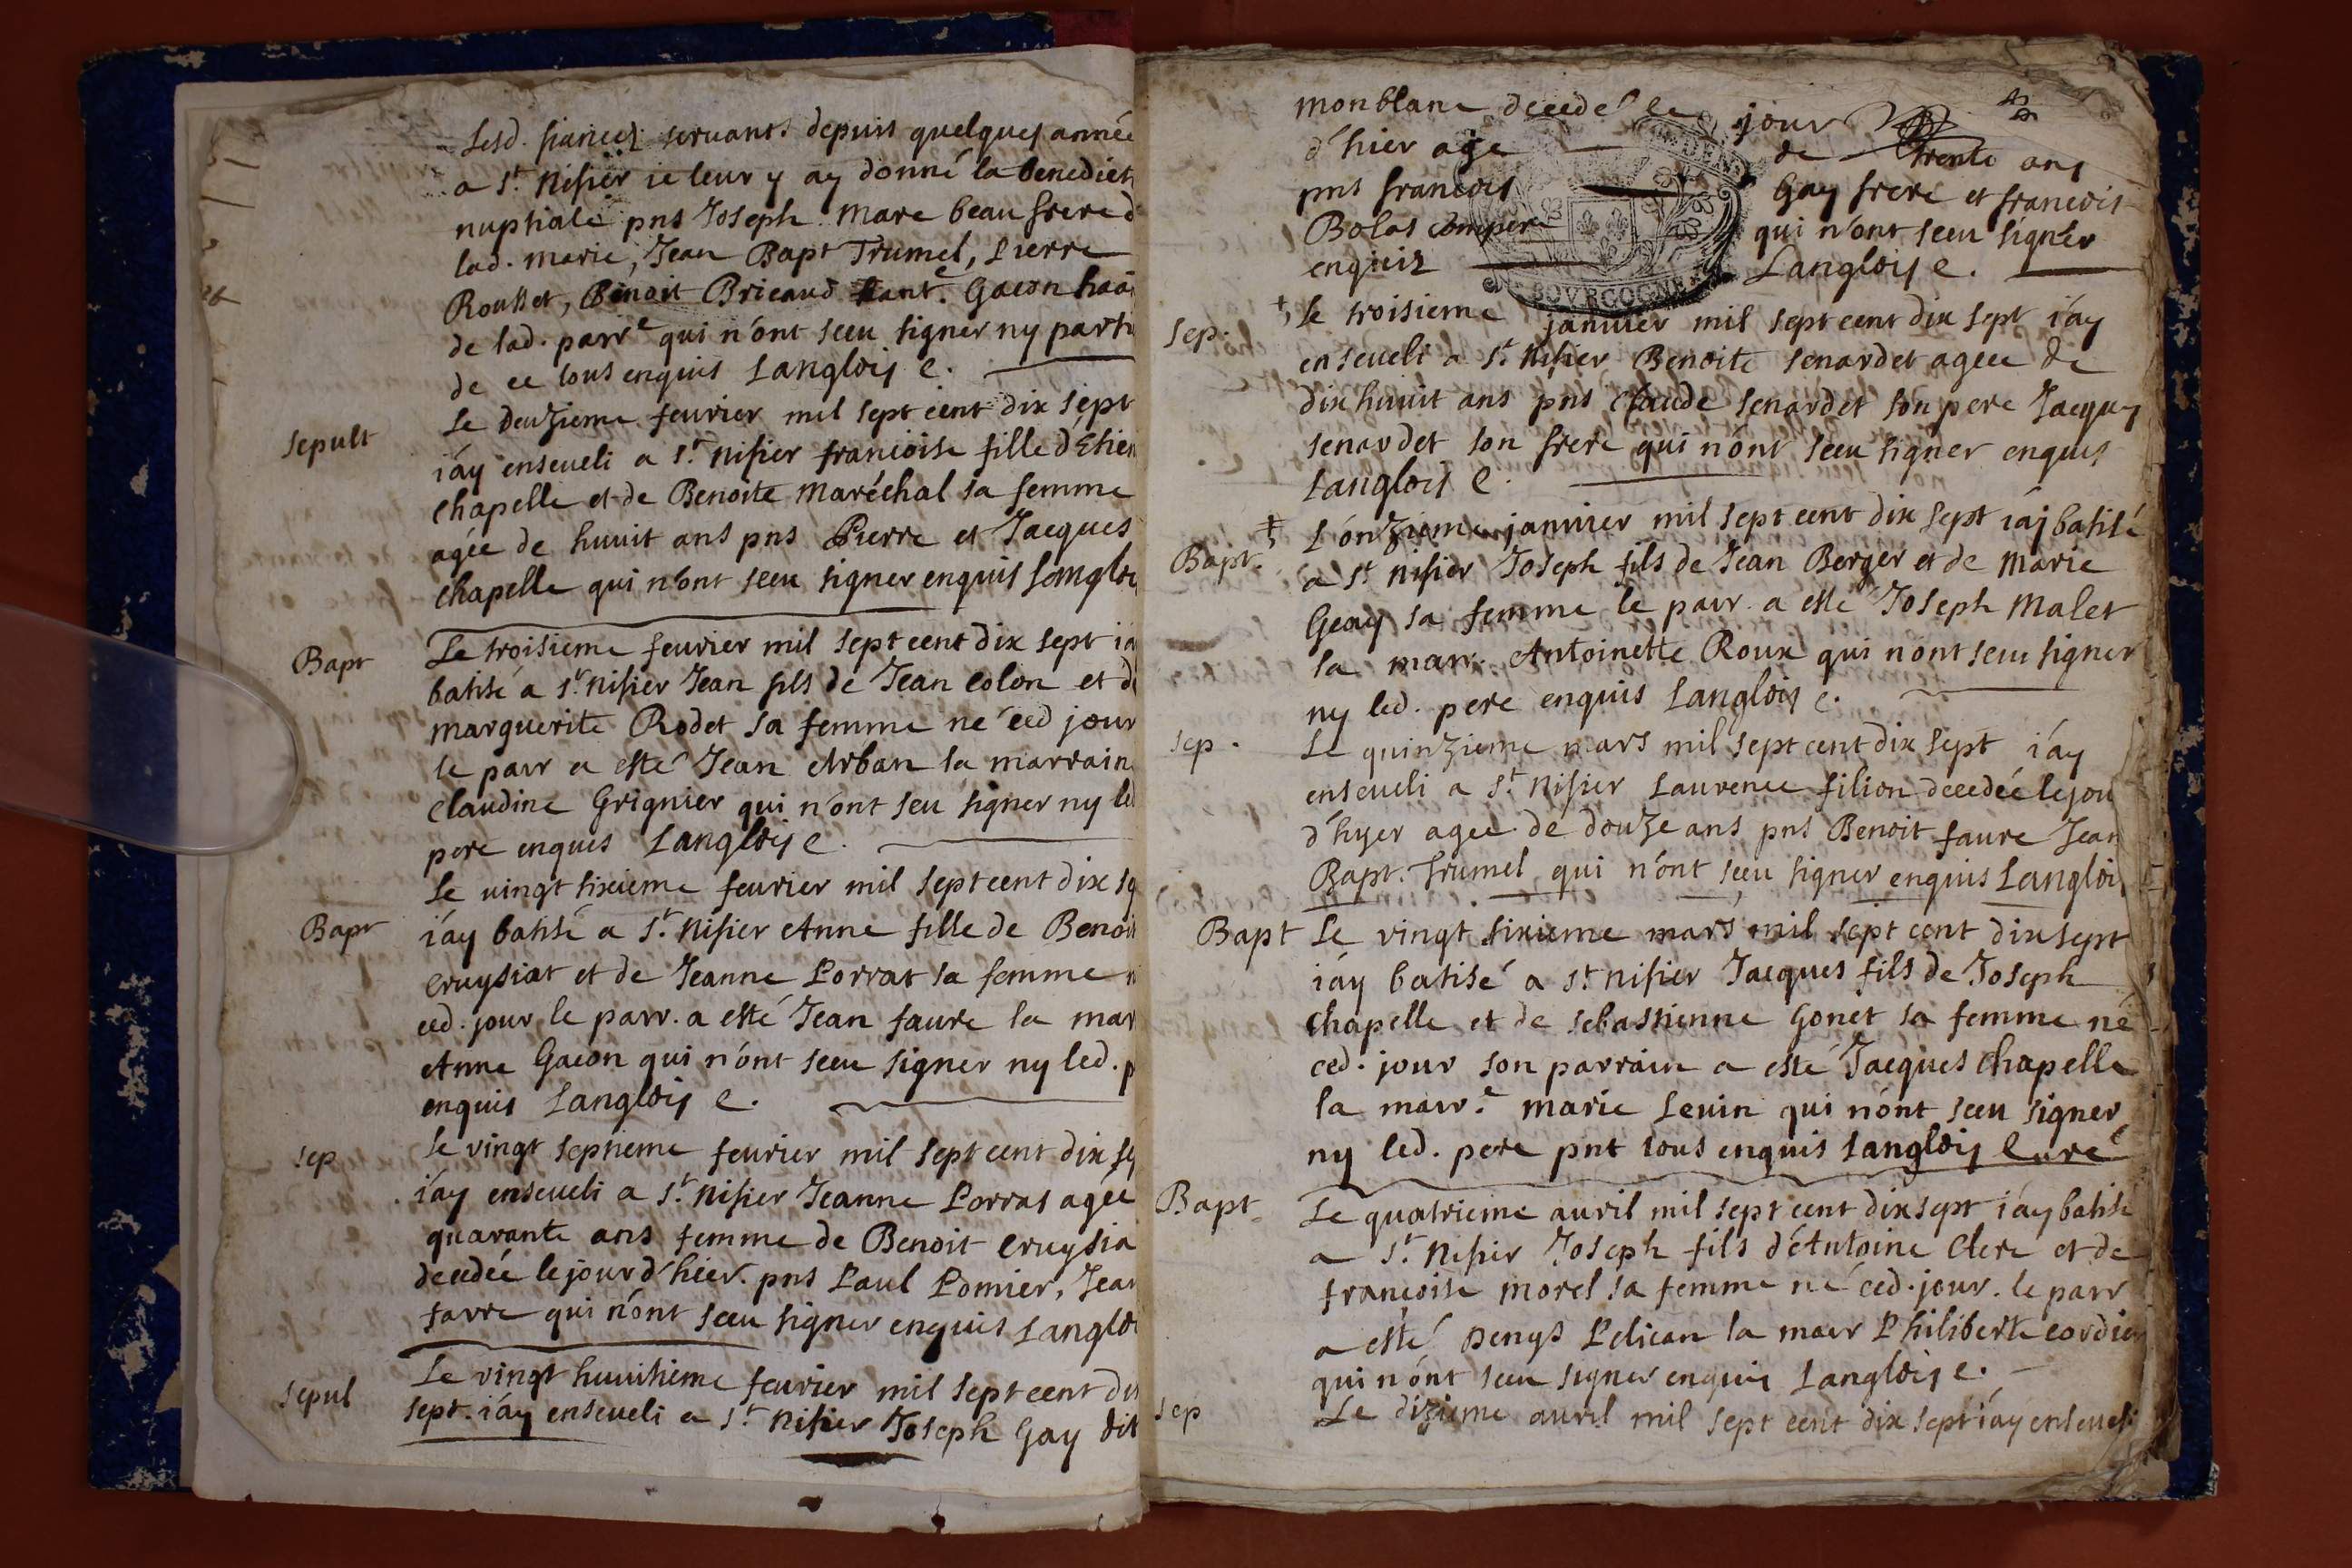 Lesd. fiancez servants depuis quelques année
a St. Nisier ie leur y ay donné la benedict
nuptiale pns Joseph Mare beau frere d
lad. Marie, Jean Bapt Trumel, Pierre
Rousset, Benoit Bricaud Gacon haã
de lad. parre qui n'ont sceu signer ny parti
de ce tous enquis Langlois c.
sepult
Le deuzieme feurier mil sept cent dix sept
i'ay enseueli a St. Nisier francoise fille d'Etien
chapelle et de Benoite Maréchal sa femme
agée de huuit ans pns Pierre et Jacques
chapelle qui n'ont sceu signer enquis Langloi
Bapt
Le troisieme feurier mil sept cent dix sept ia
batisé a St. Nisier Jean fils de Jean Colon et de
marguerite Rodet sa femme né ced jour
le parr a esté Jean Arban la marrain
Claudine Grignier qui n'ont seu signer ny led
pere enquis Langlois c.
Bapt
Le uingt sixieme feurier mil sept cent dix se
i'ay batisé a St. Nisier Anne fille de Benoit
cruysiat et de Jeanne Porrat sa femme n
ced. jour le parr. a esté Jean faure la mar
Anne Gacon qui n'ont sceu signer ny led. p
enquis Langlois c.
sep
Le vingt septieme feurier mil sept cent dix se
i'ay enseueli a St. Nisier Jeanne Porras agée
quarante ans femme de Benoit cruysia
decedée le jour d'hier. pns Paul Pomier, Jean
favre qui n'ont sceu signer enquis Langloi
sepul
Le vingt huuitieme feurier mil sept cent dix
sept. i'ay enseueli a St. Nisier Joseph Gay dit
monblanc decedé le jour
d'hier age de trente ans
pns francois Gay frere et francois
Bolas compere qui n'ont sceu signer
enquis Langlois c.
BOVRGOGNE
sep.
Le troisieme januier mil sept cent dix sept i'ay
enseueli a St. Nisier Benoite senardet agee de
dix huuit ans pns Claude senardet son pere Jacques
senardet son frere qui n'ont sceu signer enquis
Langlois c.
Bapt.
L'onzieme januier mil sept cent dix sept iaj batisé
a St Nisier Joseph fils de Jean Berger et de Marie
Geay sa femme le parr. a esté Joseph Malet
la marr. Antoinette Roux qui n'ont seu signer
ny led. pere enquis Langlois c.
sep.
Le quinzieme mars mil sept cent dix sept i'ay
enseueli a St Nisier Laurence filion decedée le jou
d'hyer agee de douze ans pns Benoit faure Jean
Bapt. Trumel qui n'ont sceu signer enquis Langloi
Bapt
Le vingt sixieme mars mil sept cent dix sept
i'ay batisé a St Nisier Jacques fils de Joseph
Chapelle et de sebastienne Gonet sa femme né
ced. jour son parrain a esté Jacques Chapelle
la marre Marie Leuin qui n'ont sceu signer
ny led. pere pnt tous enquis Langlois Curé
Bapt.
Le quatrieme auril mil sept cent dix sept i'ay batisé
a St. Nisier Joseph fils d'Antoine Clerc et de
francoise morel sa femme né ced. jour. le parr
a esté Denys Pelican la marr Philiberte cordier
qui n'ont sceu signer enquis Langlois c.
sep
Le dizieme auril mil sept cent dix sept i'ay enseueli